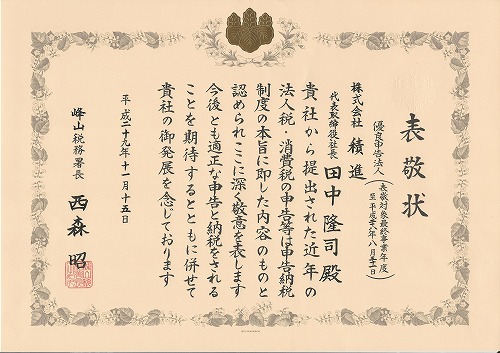 表敬状
優良申告法人
（表敬対象最終事業年度
至平成廿八年八月三十一日）
株式会社 積進
代表取締役社長 田中隆司殿
貴社から提出された近年の
法人税・消費税の申告等は申告納税
制度の本旨に即した内容のものと
認められここに深く敬意を表します
今後とも適正な申告と納税をされる
ことを期待するとともに併せて
貴社の御発展を念じております
平成二十九年十一月十五日
峰山税務署長 西森昭